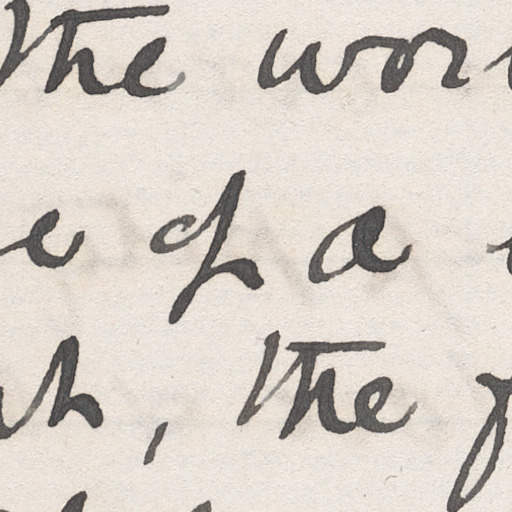 the wor
e of a
h, the